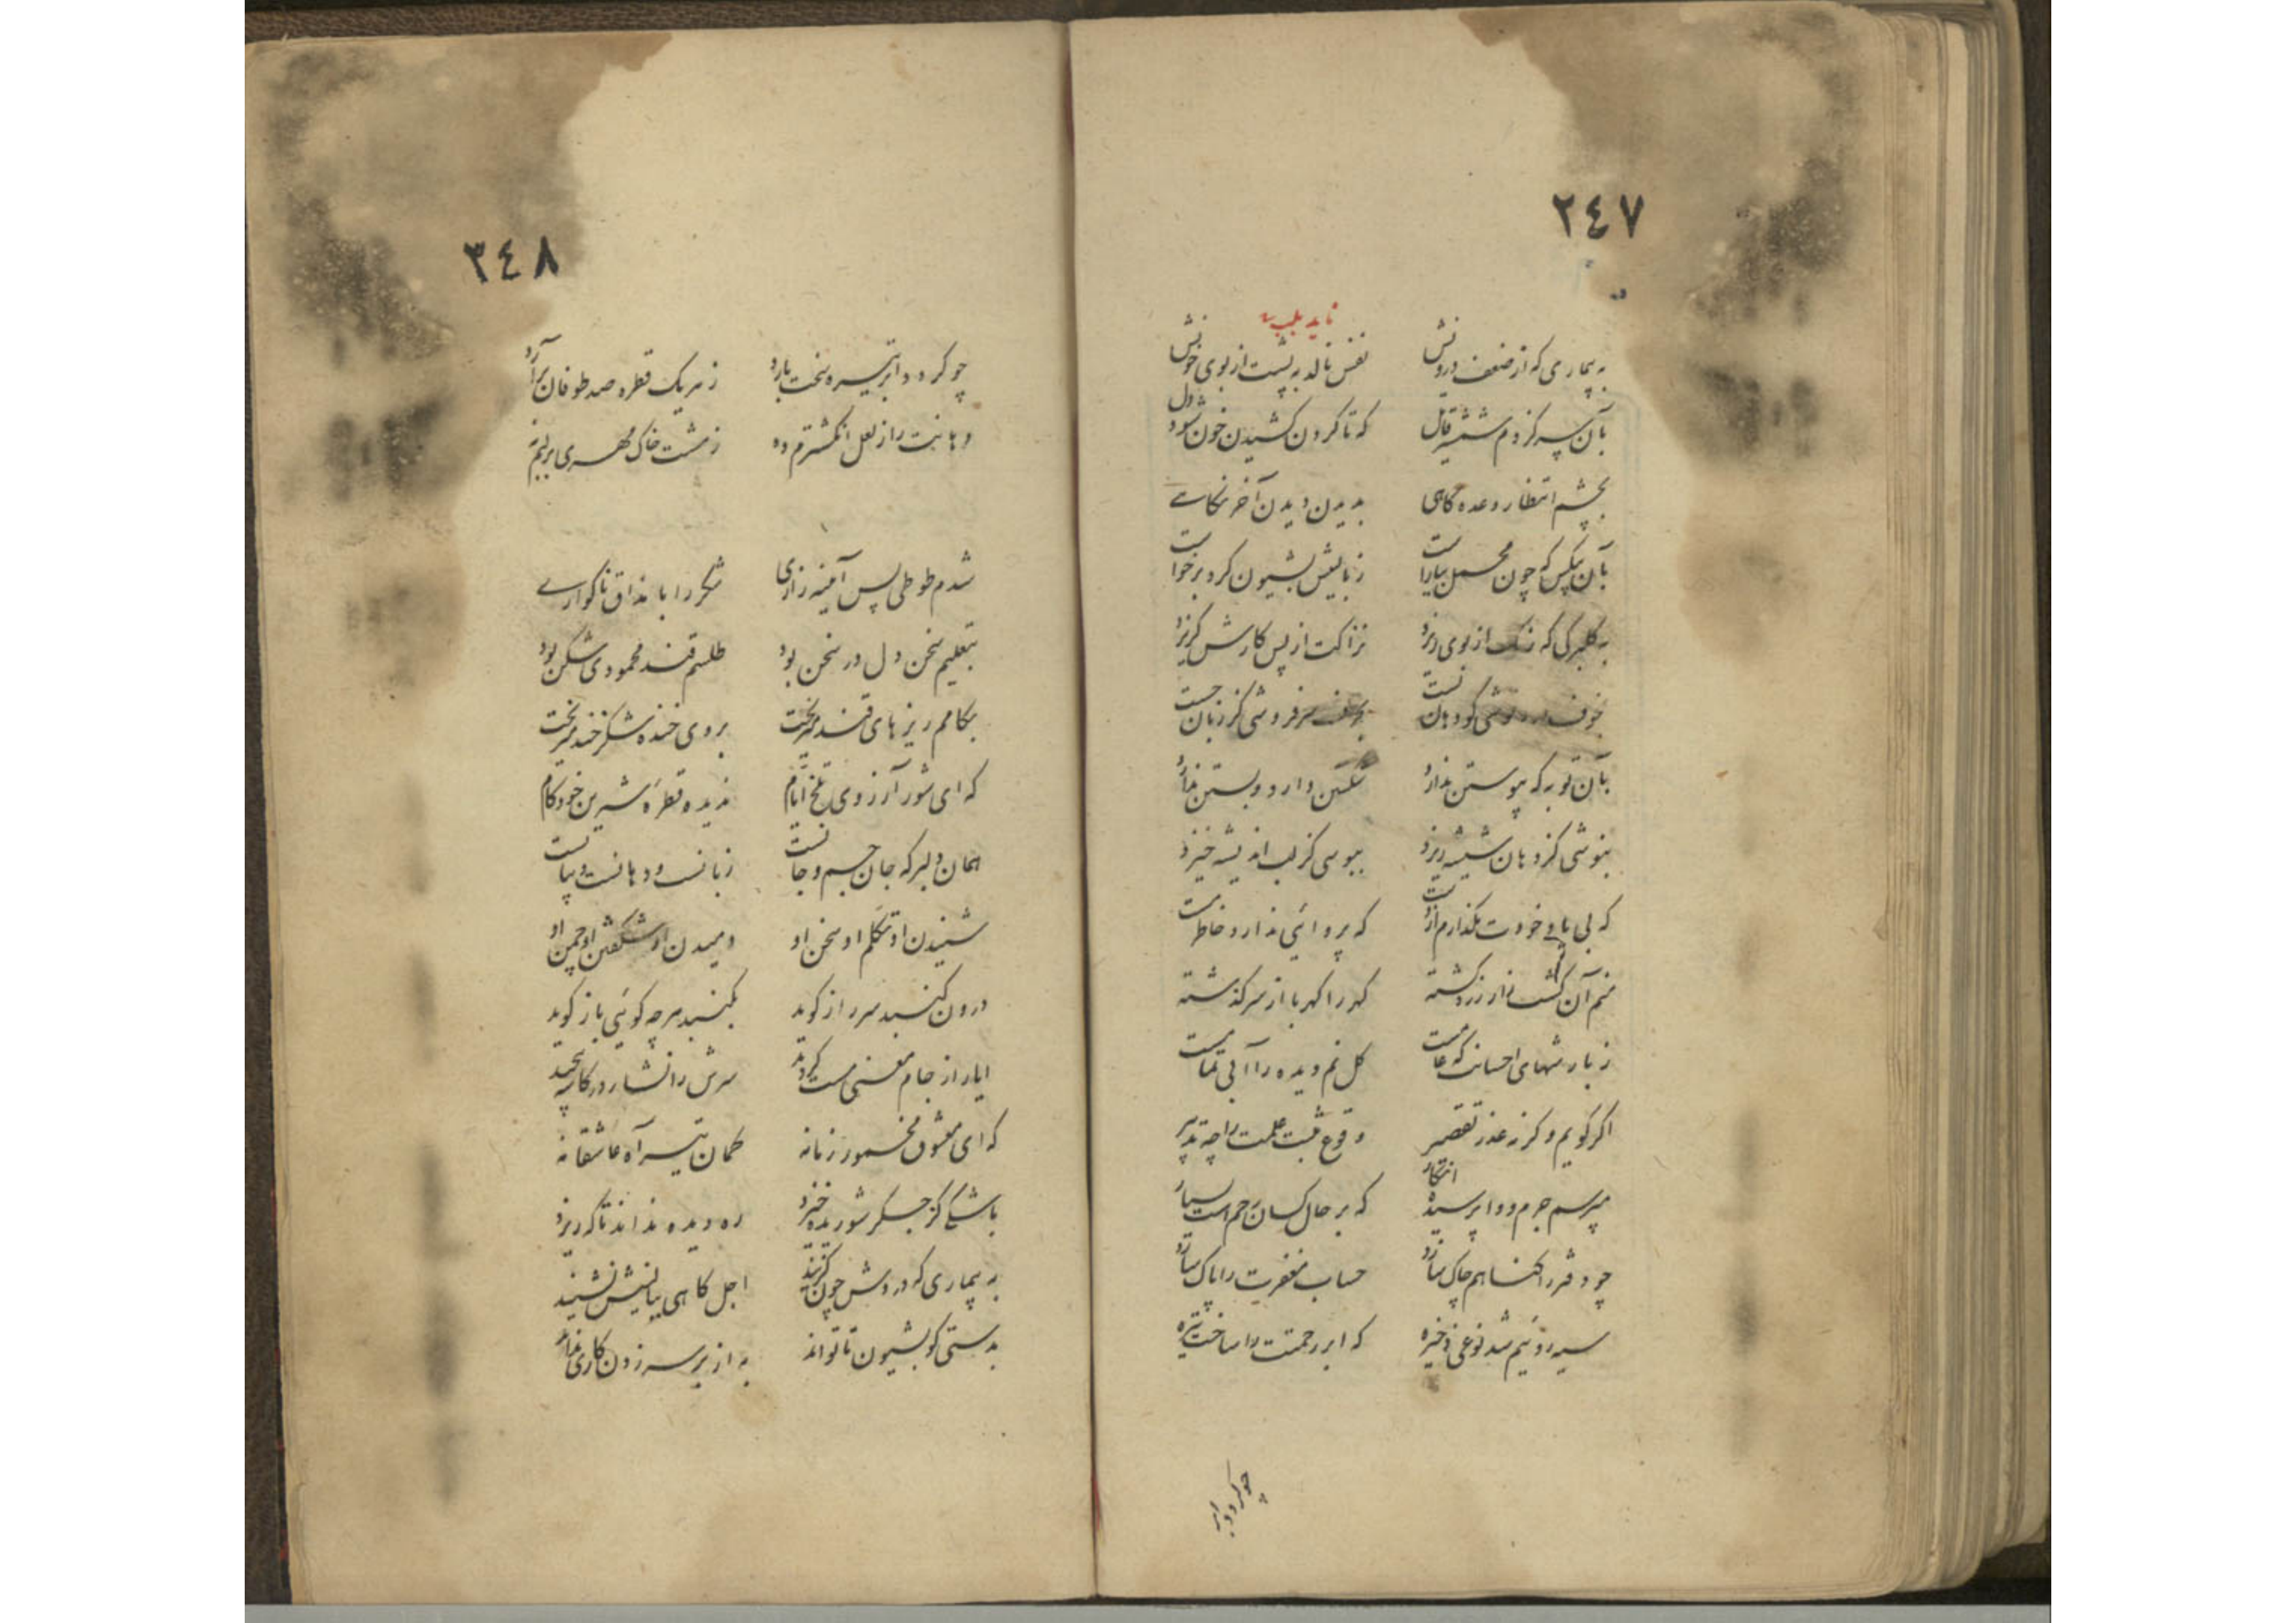 ٢٤٧
ناید بلب
به بیماری که از ضعف درونش نفس نالد به پشت از بوی خونش
بآن سر کز دم شمشیر قاتل که تا کردن کشیدن خون شود دل
بچشم انتظار وعده کاهی بدیدن دیدن آخر نکاهے
بآن بیکس که چون محمل بیاراست زبالینش بشیون کرد برخواست
به کلبرکی که رنک از بوی ریزد نزاکت از پس کارش کریزد
نوشی کو دهان نیست سرفروشی کز زبان جست
بآن توبه که پیوستن ندارد شکستن دارد و بستن ندارد
بنوشی کز دهان شیشه ریزد ببوسی کز لب اندیشه خیزد
که بی یا خودت بکذارم ازدست که پروائی ندارد خاطر مست
منم آن کشت زار زرد کشته کهر را کهربا از سر کذشته
ز بارشهای احسانت که عامست کل نم دیده را آبی تمامست
اکر کویم وکر نه عذر تقصیر وقوع مثبت علمت را چه تدبیر
مپرسم جرم و وا پرسیده انکار که بر حال کسان رحم است بسیار
چو دفتر را کناهم چاک سازد حساب مغفرت را پاک سازد
سیه روئیم شد نوعی ذخیره که ابر رحمتت را ساخت تیره
چو کردد ابر
٣٤٨
چو کردد ابر تیره سخت بارد ز هر یک قطره صد طوفان برآرد
دهانت را ز لعل انکشترم ده ز مشت خاک مهری بر لبم نه
شدم طوطی پس آئینه رازی شکر را با مذاق ناکوارے
بتعلیم سخن دل در سخن بود طلسم قند محمودی شکن بود
بکامم ریزهای قند میریخت بروی خنده شکرخند میریخت
که ای شور آرزوی تلخ ایام ندیده قطرهٔ شیرین خود کام
همان دلبر که جان جسم و جانست زبانست و دهانست و بیانست
شنیدن او تکلم او سخن او دمیدن او شکفتن او چمن او
درون کنبد سر راز کوید بکنبد هرچه کوئی باز کوید
ایاز از جام معنی مست کردید سرش را نشا در کار پیچید
که ای معشوق مخمور زمانه کمان تیر آه عاشقانه
باشکے کز جکر شوریده خیزد ره دیده نداند تا که ریزد
به بیماری که دردش چون کزیند اجل کاهی ببالینش نشیند
بدستی کو بشیون تا تواند به از بر سر زدن کاری نداند